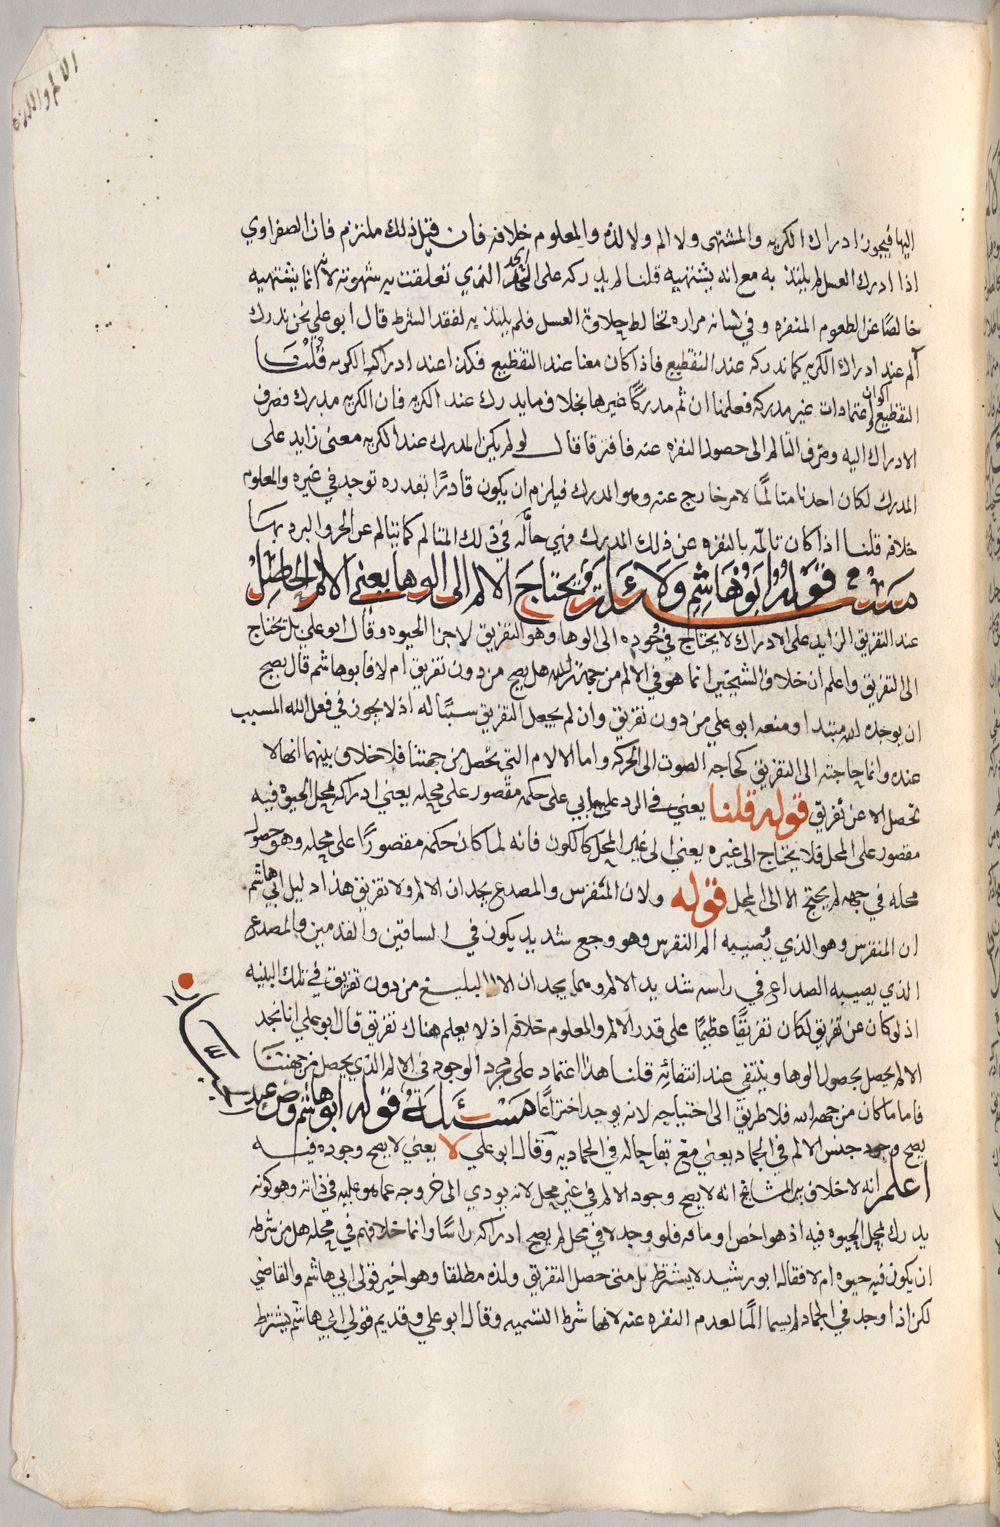 اليها فيجوز ادراك الكريه والمشتهى ولا الم ولا لذه والمعلوم خلافه فان قيل ذلك ملتزم فان الصفراوي
اذا ادرك العسل لم يلتذ به مع انه يشتهيه قلنا لم يدركه على الحد الذي تعلقت به شهوته لانه انما يشتهيه
خالصًا عن الطعوم المنفره وفي لسانه مراره تخالط حلاوة العسل فلم يلتذ به لفقد الشرط قال ابو علي نحن ندرك
ألم عند ادراك الكريه كما ندركه عند التقطيع فاذا كان معنا عند التقطيع فكذا عند ادراك الكريه قلنا
التقطيع اكوان واعتمادات غير مدركه فعلمنا ان ثم مدركًا غيرها بخلاف ما يدرك عند الكريه فان الكريه مدرك وصرف
الادراك اليه وصرف التالم الى حصول النفره عنه فافترقا قال لو لم يكن المدرك عند الكريه معنى زايد على
المدرك لكان احدنا متالمًا لامر خارج عنه وهو المدرك فيلزم ان يكون قادرًا بقدره توجد في غيره والمعلوم
خلافه قلنا اذا كان تالمه بالنفره عن ذلك المدرك فهي حاله في ذلك المتالم كما يتالم عن الحر والبرد بها
مسئلة قوله ابو هاشم ولا يحتاج الالم الى الوها يعني الالم الحاصل
عند التفريق الزايد على الادراك لا يحتاج في وجوده الى الوها وهو التفريق لاجزا الحيوه وقال ابو علي بل يحتاج
الى التفريق واعلم ان خلاف الشيخين انما هو في الالم من جهة الله هل يصح من دون تفريق ام لا فابو هاشم قال يصح
ان يوجده الله مبتدا ومنعه ابو علي من دون تفريق وان لم يجعل التفريق سببًا له اذ لا يجوز في فعل الله المسبب
عنده وانما حاجته الى التفريق كحاجه الصوت الى الحركه واما الالام التي تحصل من جهتنا فلا خلاف بينهما انها لا
تحصل الا عن تفريق قوله قلنا يعني في الرد على ابي على حكمه مقصور على محله يعني ادراكه بمحل الحيوه فيه
مقصور على المحل فلا يحتاج الى غيره يعني الى غير المحل كالكون فانه لما كان حكمه مقصورًا على محله وهو حصول
محله في جهه لم يحتج الا الى المحل قوله ولان المنقرس والمصدع يجدان الالم ولا تفريق هذا دليل ابي هاشم
ان المنقرس وهو الذي يُصيبه الم النقرس وهو وجع شديد يكون في الساقين والقدمين والمصدع
الذي يصيبه الصداع في راسه شديد الالم وهما يجدان الالم البليغ من دون تفريق في تلك البنيه
اذ لو كان عن تفريق لكان تفريقًا عظيمًا على قدر الالم والمعلوم خلافه اذ لا يعلم هناك تفريق قال ابو علي انا نجد
الالم يحصل بحصول الوها وينتفي عند انتفائه قلنا هذا اعتماد على مجرد الوجود في الالم الذي يحصل من جهتنا
فاما ما كان من جهه الله فلا طريق الى احتياجه لانه يوجد اختراعًا مسئلة قوله ابو هاشم وض عبد
يصح وجود جنس الالم في الجماد يعني مع بقا حاله في الجماديه وقال ابو علي لا يعني لا يصح وجوده فيه
اعلم انه لا خلاف بين المشايخ انه لا يصح وجود الالم في غير محل لانه يودي الى خروجه عما هو عليه في ذاته وهو كونه
يدرك بمحل الحيوه فيه اذ هو اخص اوصافه فلو وجد لا في محل لم يصح ادراكه راسًا وانما خلافهم في محله هل من شرطه
ان يكون فيه حيوه ام لا فقال ابو رشيد لا يشترط بل متى حصل التفريق ولذه مطلقا وهو اخير قولي ابي هاشم والقاضي
لكن اذا وجد في الجماد لم يسما المًا لعدم النفره عنه لانها شرط التسميه وقال ابو علي وقديم قولي ابي هاشم يشترط